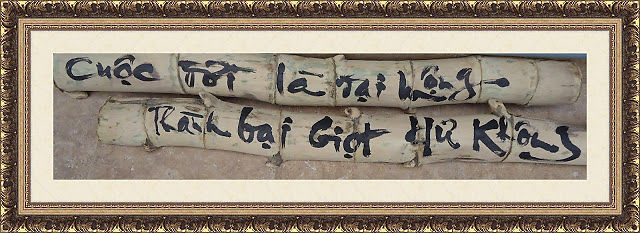 Cuộc Đời là Đại Mộng -
Thành bại Giọt Hư Không